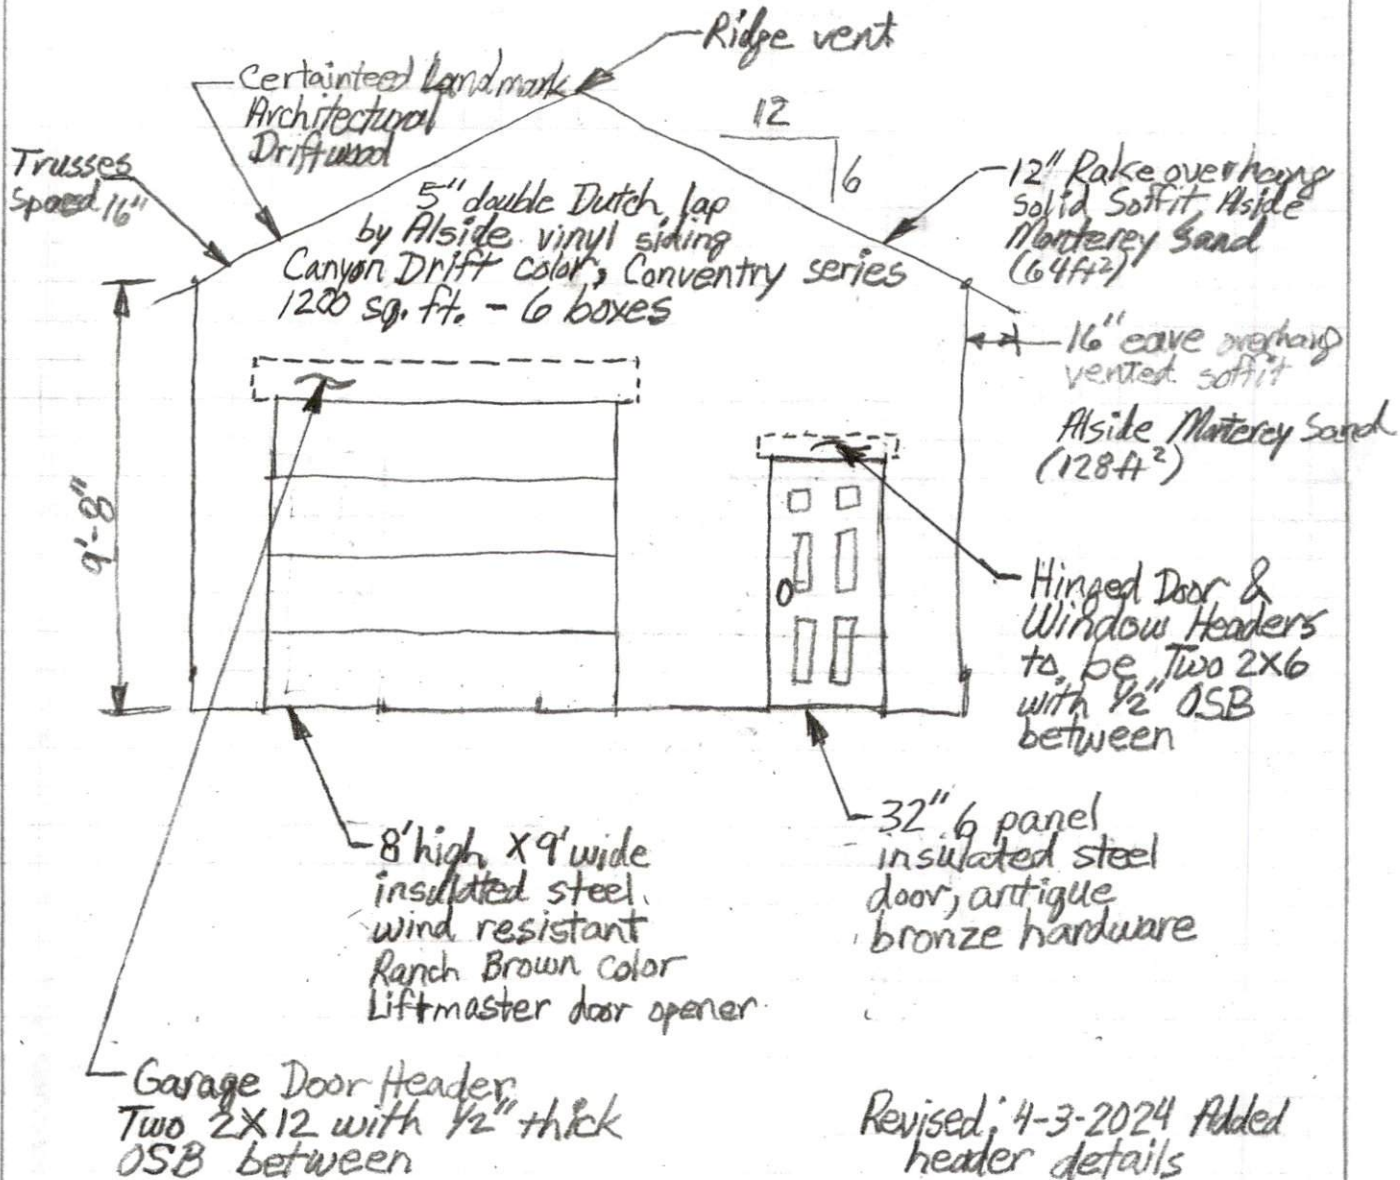 Ridge vent
Certainteed Landmark
Architectural
Driftwood
12
6
Trusses
Spaced 16"
12" Rake overhang
solid Soffit Alside
Monterey Sand
(64ft²)
5" double Dutch lap
by Alside vinyl siding
Canyon Drift color, Conventry series
1200 sq. ft. - 6 boxes
16" eave overhang
vented soffit
Alside Monterey Sand
(128ft²)
9'-8"
Hinged Door &
Window Headers
to be Two 2X6
with 1/2" OSB
between
8' high X 9' wide
insulated steel
wind resistant
Ranch Brown color
Liftmaster door opener
32" 6 panel
insulated steel
door, antique
bronze hardware
Garage Door Header
Two 2X12 with 1/2" thick
OSB between
Revised: 4-3-2024 Added
header details